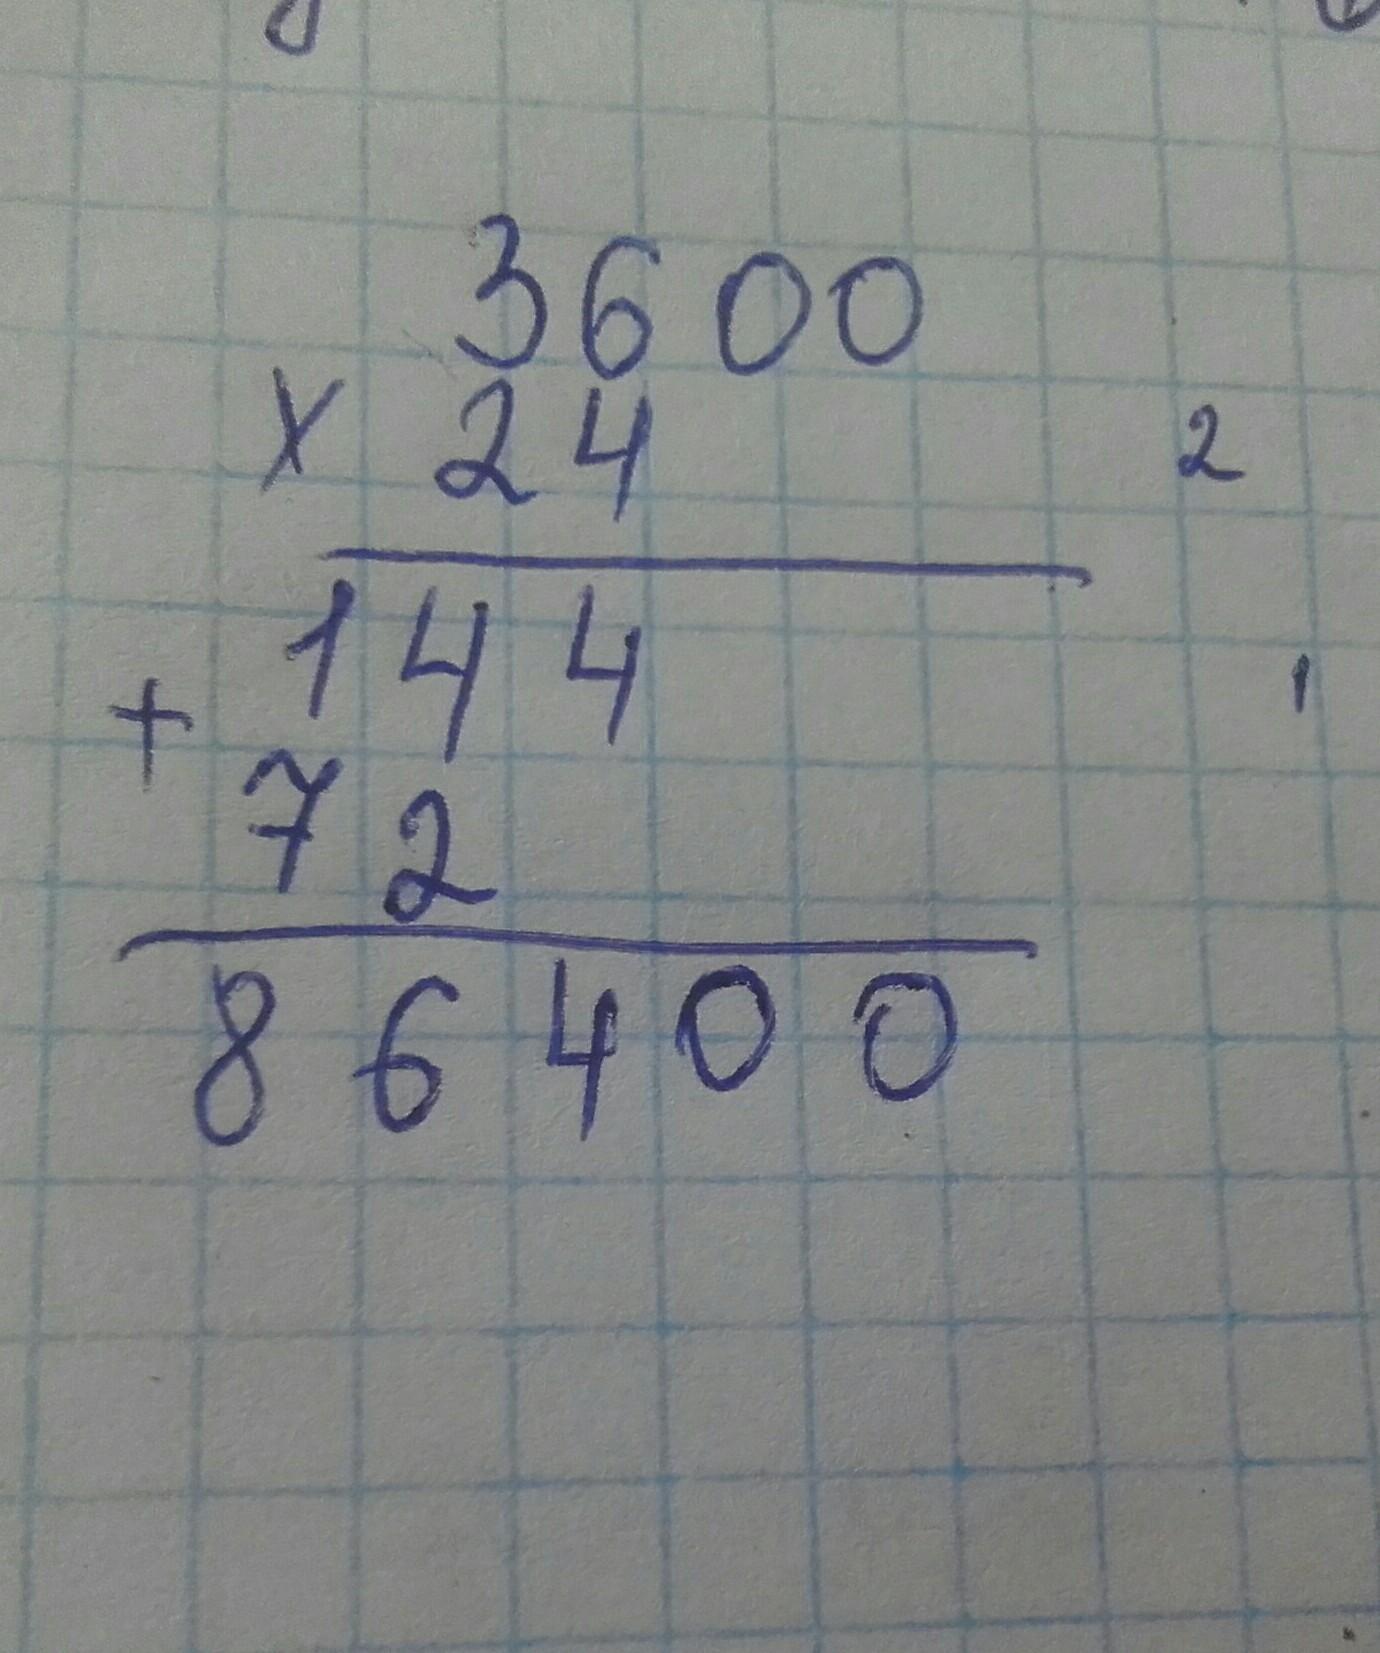 3600
x 24 2
144
+ 1
72
86400